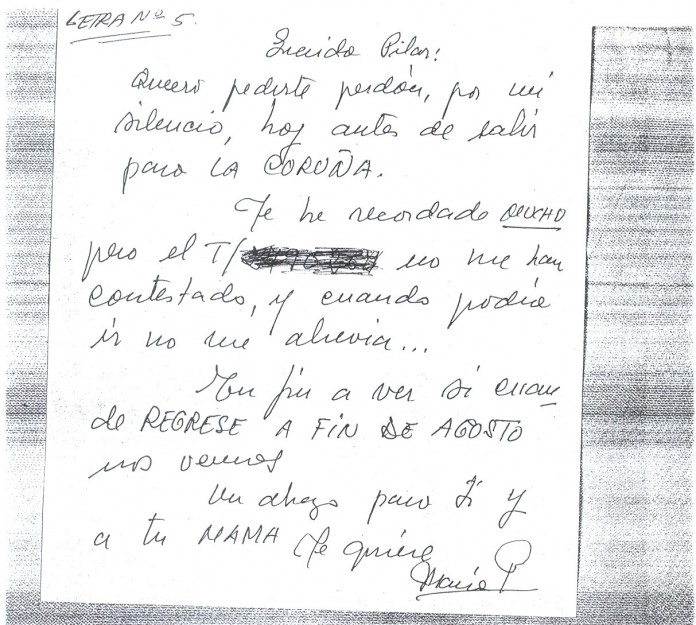 LETRA Nº 5
Querida Pilar:
Quiero pedirte perdón, por mi
silencio, hoy antes de salir
para LA CORUÑA.
Te he recordado MUCHO
pero el T/ no me han
contestado, y cuando podía
ir no me atrevia...
En fin a ver si cuan
do REGRESE A FIN DE AGOSTO
nos vemos
Un abrazo para ti y
a tu MAMA Te quiere
Maria P